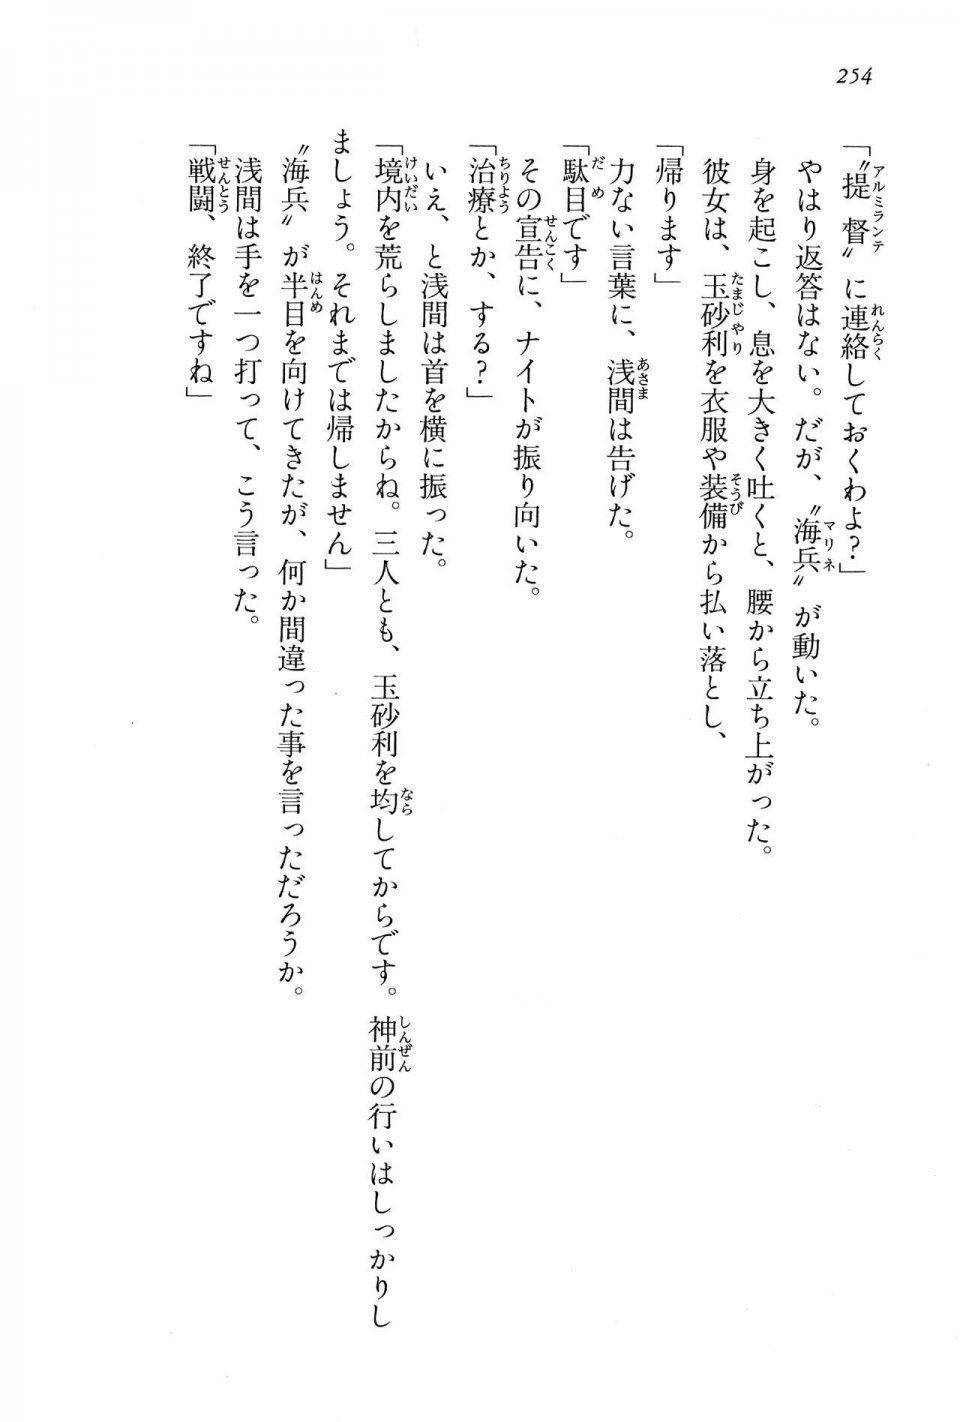 254
「〝提督〟に連絡しておくわよ？」
やはり返答はない。だが、〝海兵〟が動いた。
身を起こし、息を大きく吐くと、腰から立ち上がった。
彼女は、玉砂利を衣服や装備から払い落とし、
「帰ります」
力ない言葉に、浅間は告げた。
「駄目です」
その宣告に、ナイトが振り向いた。
「治療とか、する？」
いえ、と浅間は首を横に振った。
「境内を荒らしましたからね。三人とも、玉砂利を均してからです。神前の行いはしっかりし
ましょう。それまでは帰しません」
〝海兵〟が半目を向けてきたが、何か間違った事を言っただろうか。
浅間は手を一つ打って、こう言った。
「戦闘、終了ですね」